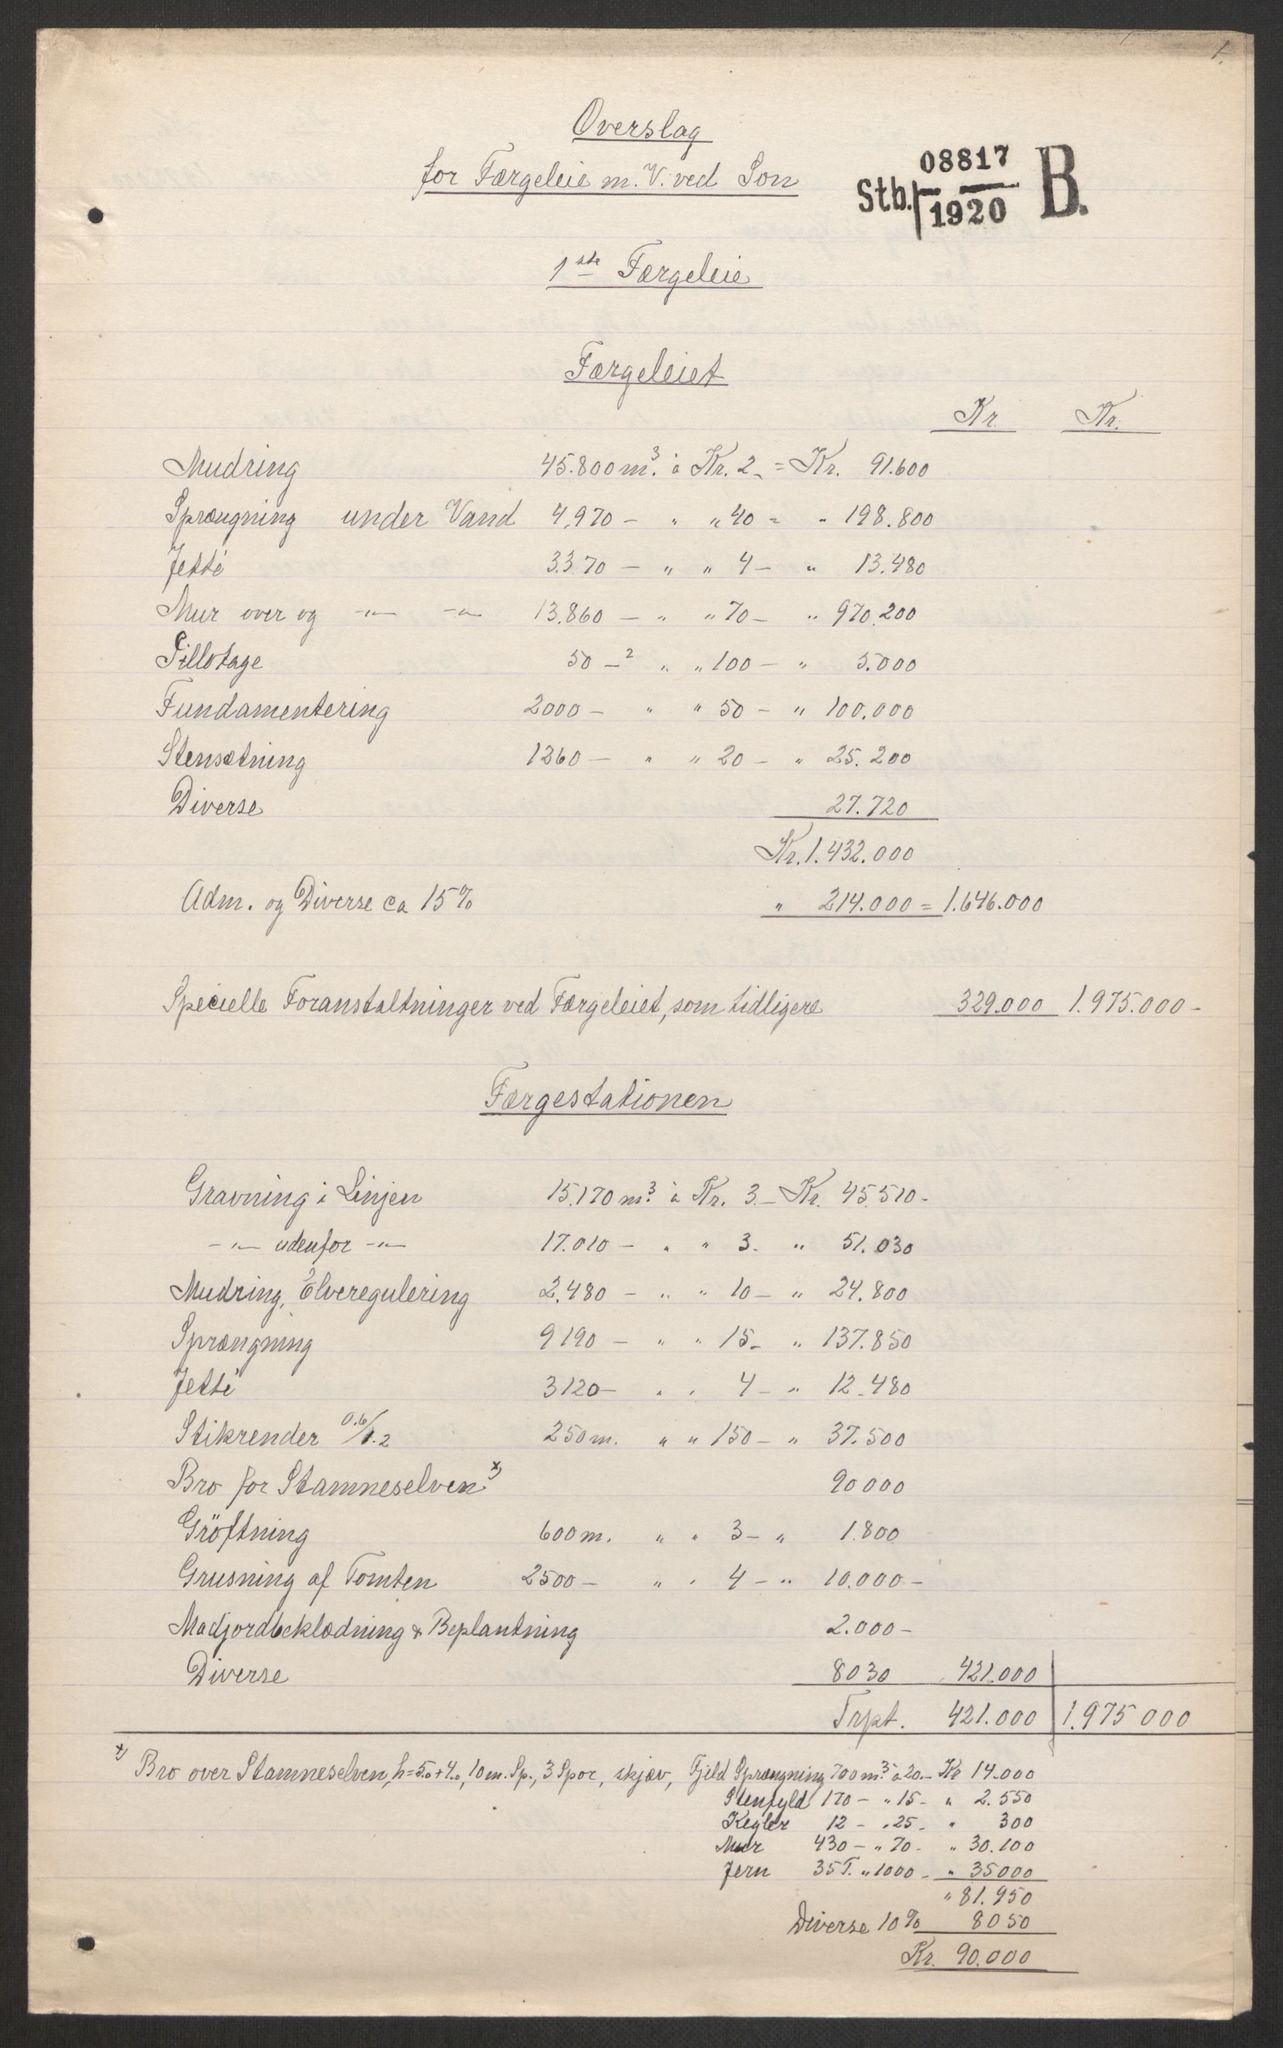 1.
Overslag
for Færgeleie m.V. ved Son
08817
Stb. 1920 B.
1ste Færgeleie
Færgeleiet
Kr Kr.
Mudring 45.800 m.³ à Kr. 2.- = Kr. 91.600
Sprængning under Vand 4,970 - " " 40 = " 198.800
Jetté 3370 - " " 4 - " 13.480
Mur over og -"- -"- 13.860 - " " 70 - " 970.200
Pillotage 50 -² " " 100 - " 5.000
Fundamentering 2000 - " " 50 - " 100.000
Stensætning 1260 - " " 20 - " 25.200
Diverse 27.720
Kr. 1.432.000
Adm. og Diverse ca 15% " 214.000 = 1.646.000
Specielle Foranstaltninger ved Færgeleiet, som tidligere 329.000 1.975.000 -
Færgestationen
Gravning i Linjen 15.170 m.³ à Kr. 3 - Kr. 45.510 -
-"- udenfor -"- 17.010 - " " 3. " 51.030
Mudring, Elveregulering 2.480 - " " 10 - " 24.800
Sprængning 9190 - " " 15 - " 137.850
Jetté 3120 - " " 4 - " 12.480
Stikrender 0.6/1.2 250 m. " " 150 - " 37.500
Bro for Stamneselven x) 90000
Gröftning 600 m. " " 3 - " 1.800
Grusning af Tomten 2500 - " " 4 - " 10.000 -
Madjordbeklædning & Beplantning 2.000 -
Diverse 8030 421.000
Trpt. 421.000 1.975000
x) Bro over Stamneselven, h=5.0+4.0, 10 m. Sp., 3 Spor, skjæv, Fjeld Sprængning 700 m.³ à 20.- Kr 14.000
Stenfyld 170 - " 15 - " 2.550
Kegler 12 - " 25 - " 300
Mur 430 - " 70 - " 30.100
Jern 35 T. " 1000 - " 35000
" 81.950
Diverse 10% 8050
Kr. 90.000